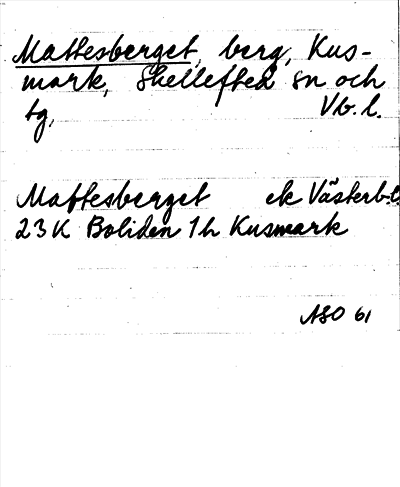 Mattesberget, berg, Kus-
mark, Skellefteå sn och
tg, Vb. l.
Mattesberget ek Västerb.l.
23K Boliden 1h Kusmark
ASO 61